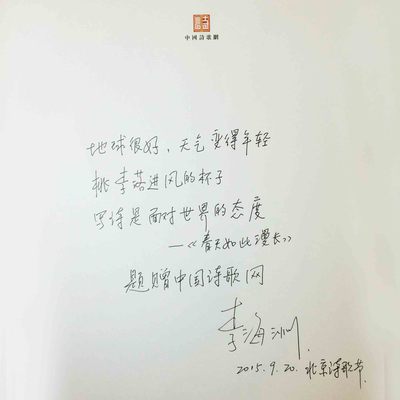 中國詩歌網
地球很好，天气变得年轻
桃李落进风的杯子
写诗是面对世界的态度
—《春天如此漫长》
题赠中国诗歌网
李海洲
2015.9.20.北京诗歌节